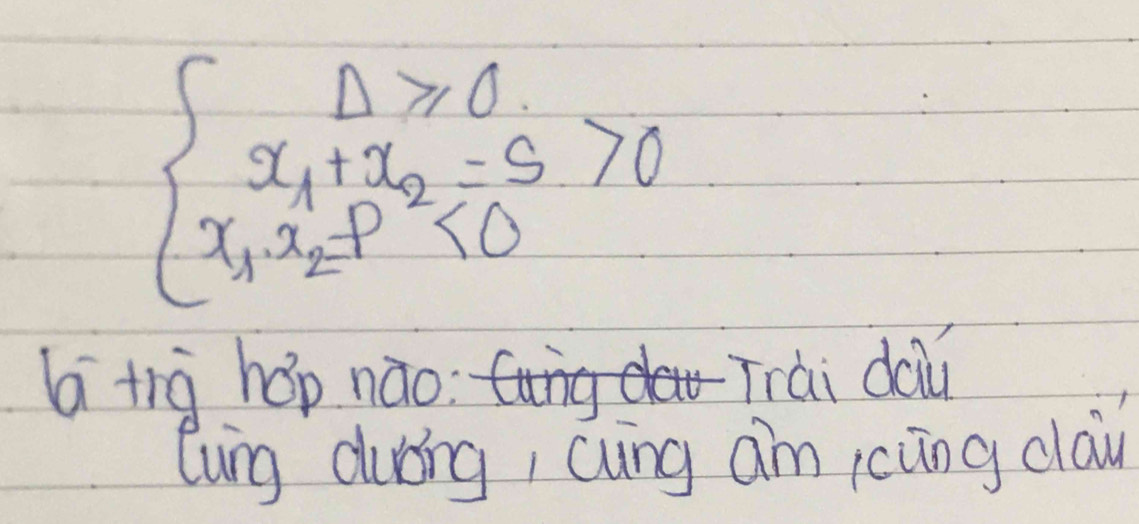 Δ ≥ 0.
x₁ + x₂ = S > 0
x₁.x₂ = P < 0
là trg hợp nào: Cùng dau Trái dấu
Cùng dương, cùng âm, cùng dấu